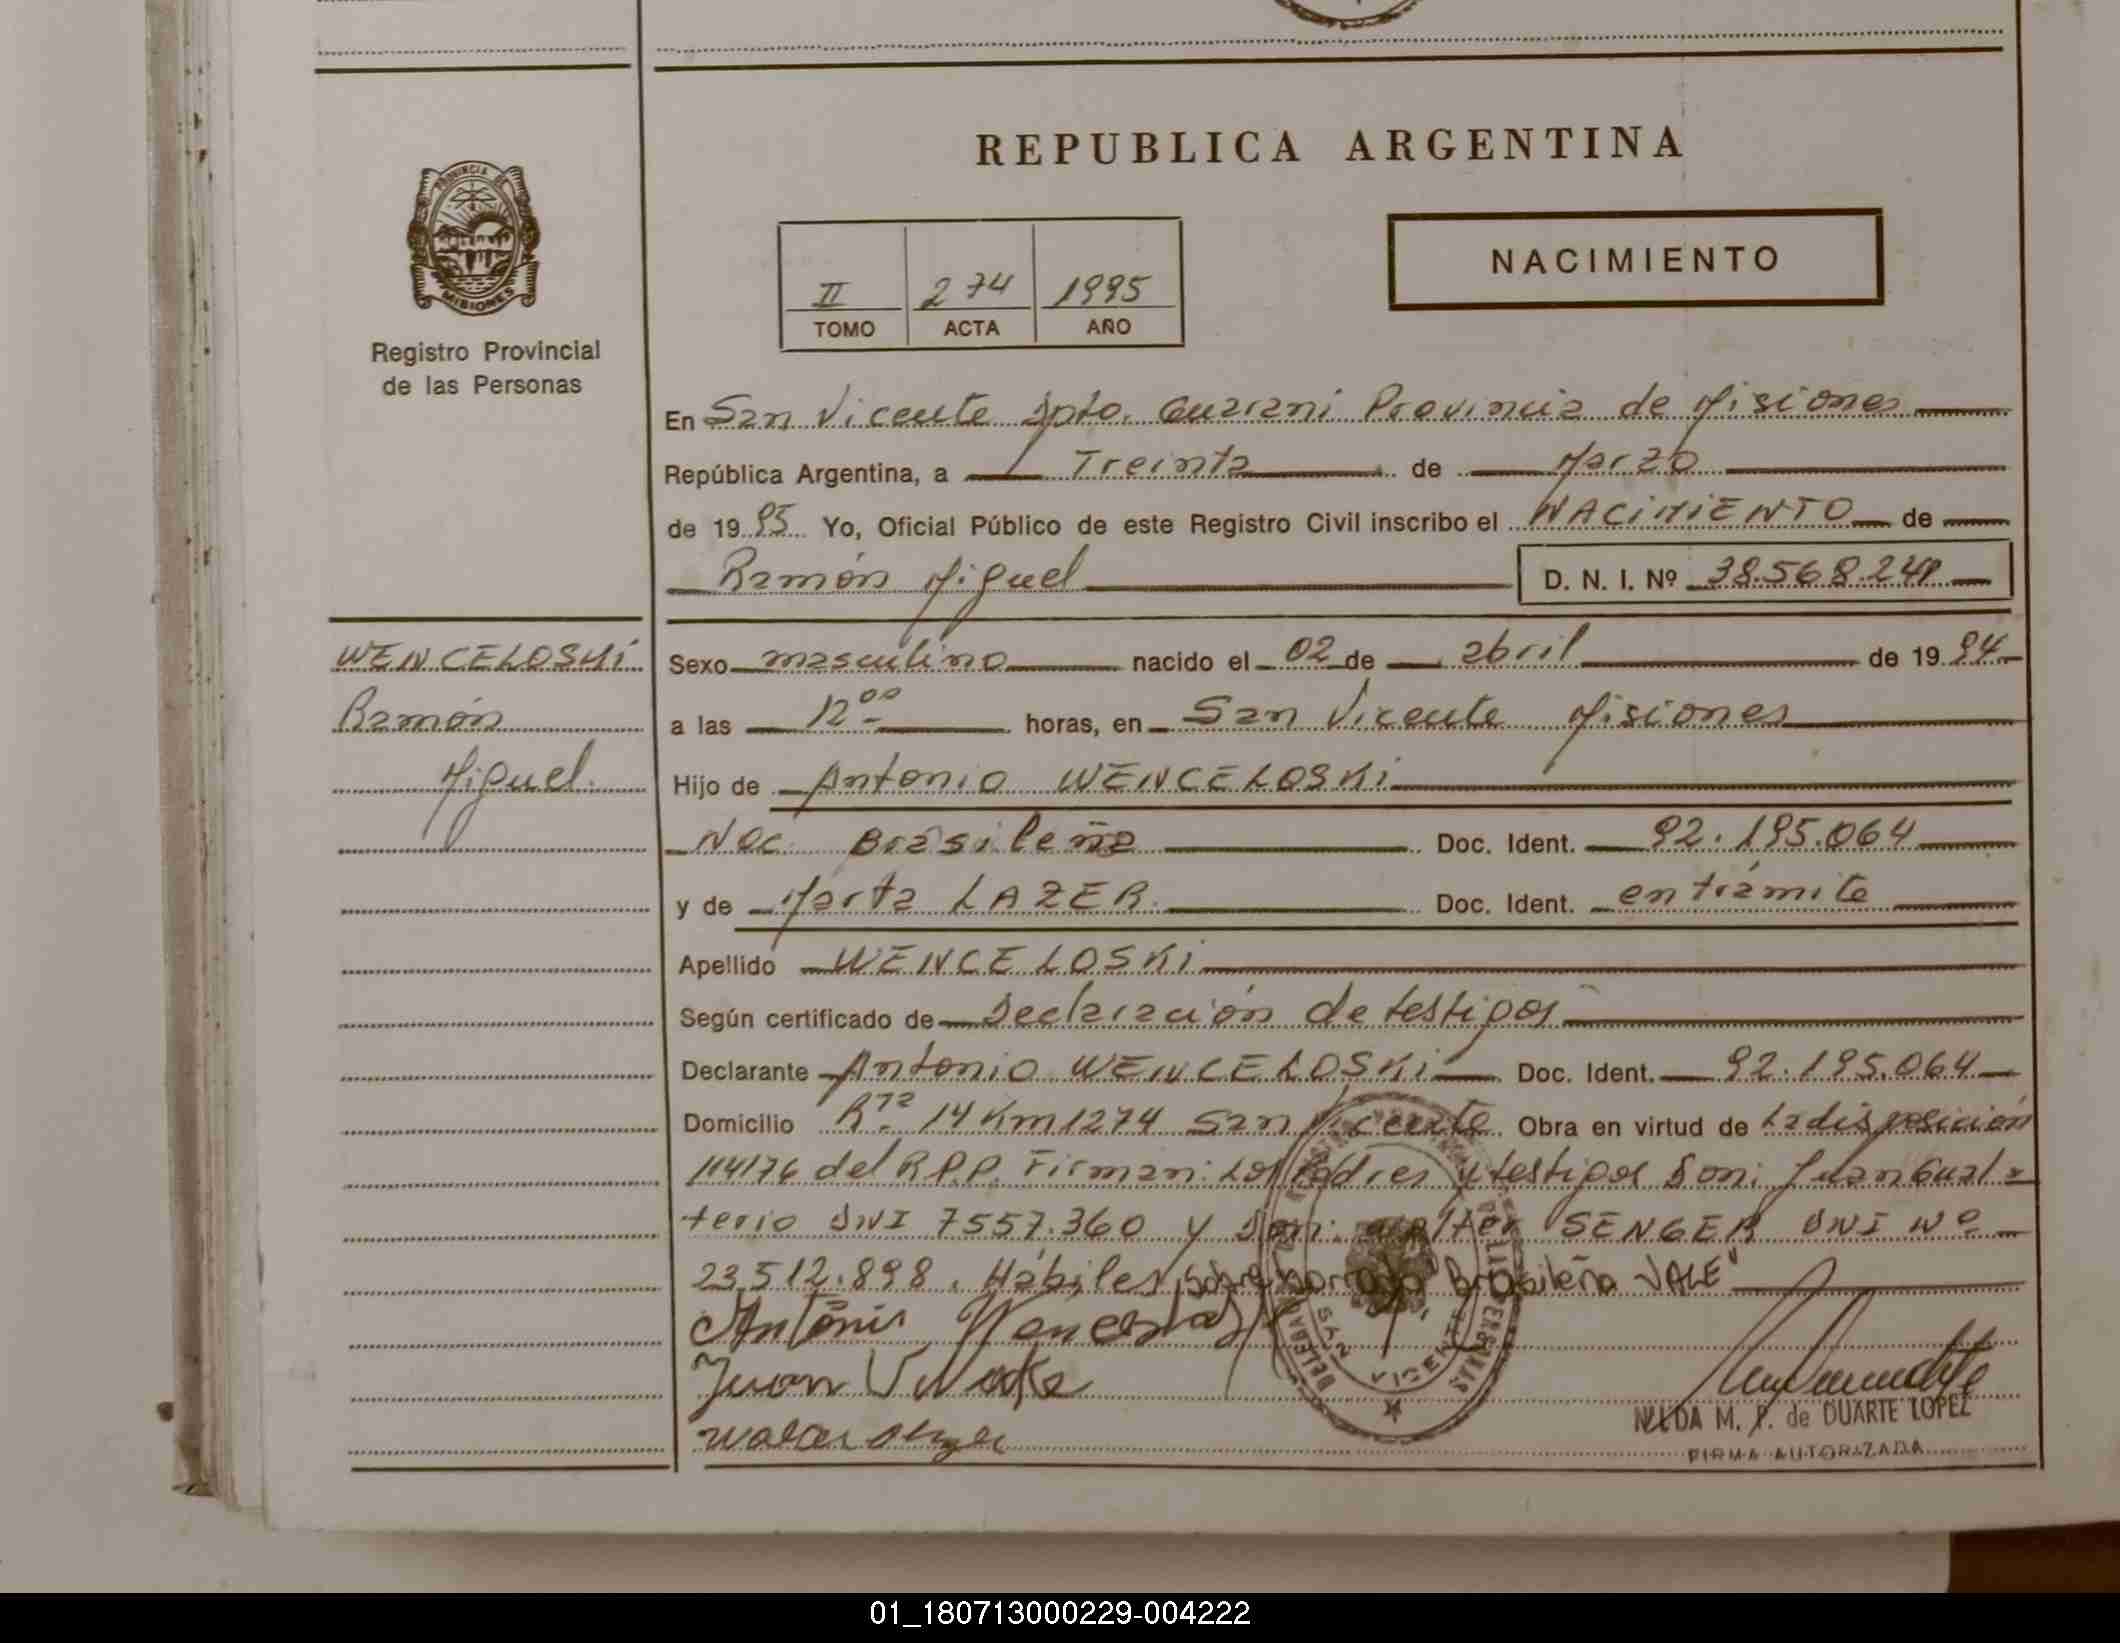 REPUBLICA ARGENTINA
PROVINCIA DE
MISIONES
Registro Provincial
de las Personas
II 274 1995
TOMO ACTA AÑO
NACIMIENTO
En San Vicente Dpto. Guarani Provincia de Misiones
República Argentina, a Treinta de Marzo
de 1995 Yo, Oficial Público de este Registro Civil inscribo el NACIMIENTO de
Ramón Miguel D. N. I. Nº 38.568.241
WENCELOSKI
Ramón
Miguel.
Sexo masculino nacido el 02 de abril de 1994
a las 12⁰⁰ horas, en San Vicente Misiones
Hijo de Antonio WENCELOSKI
Nac. Brasileña Doc. Ident. 92.195.064
y de Marta LAZER. Doc. Ident. en trámite
Apellido WENCELOSKI
Según certificado de Declaración de testigos
Declarante Antonio WENCELOSKI Doc. Ident. 92.195.064
Domicilio Rta. 14 Km 1274 San Vicente Obra en virtud de La disposición
114176 del R.P.P. Firman: Los Padres y testigos Don: Juan Gual=
terio DNI 7557.360 y Don: Walter SENGER DNI Nº
23.512.898. Hábiles, sobre borrado "Brasileña VALE"
Antonio
Juan
SAN VICENTE
NILDA M. P. de DUARTE LOPEZ
FIRMA AUTORIZADA
01_180713000229-004222